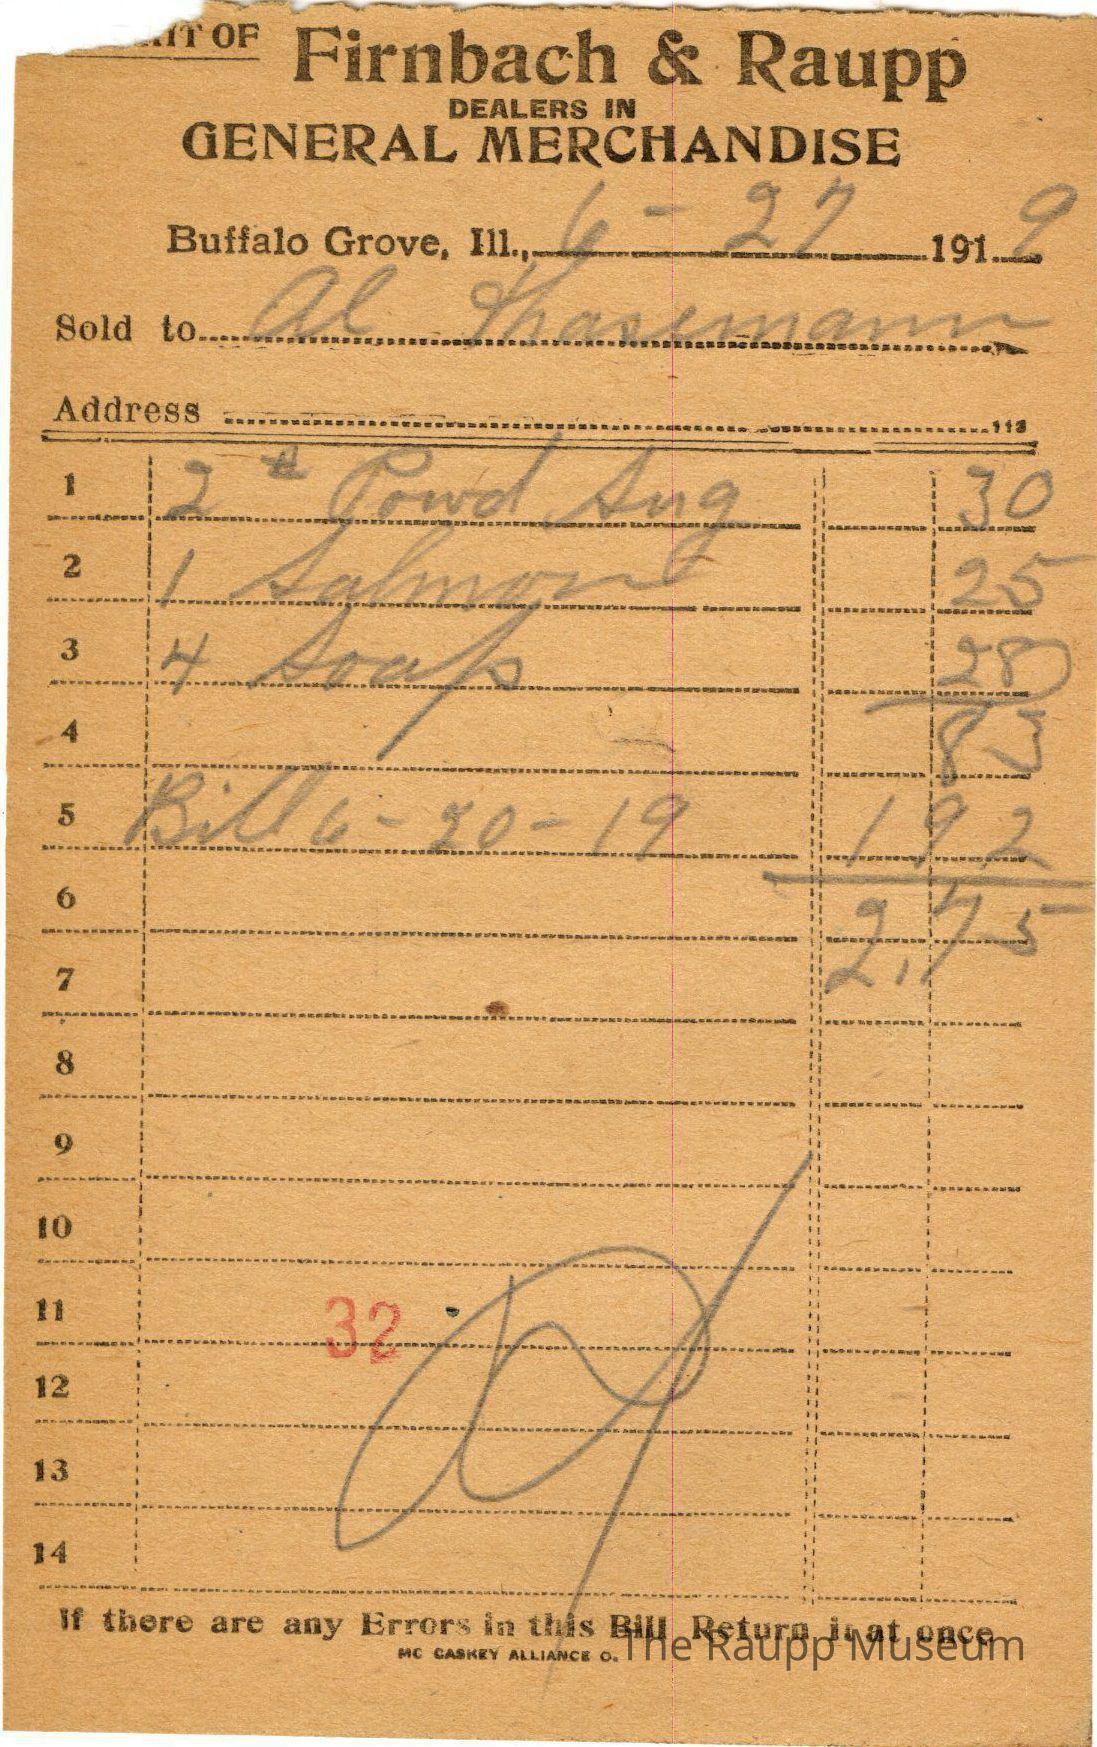 OF
Firnbach & Raupp
DEALERS IN
GENERAL MERCHANDISE
Buffalo Grove, Ill., 6 - 27 1919
Sold to Al Thasemann
Address
113
1 2 # Powd Sug 30
2 1 Salmon 25
3 4 Soap 28
4 83
5 Bill 6-20-19 192
6 2.75
7
8
9
10
11 32
12
13
14
If there are any Errors in this Bill Return it at once
MC CASKEY ALLIANCE O.
The Raupp Museum